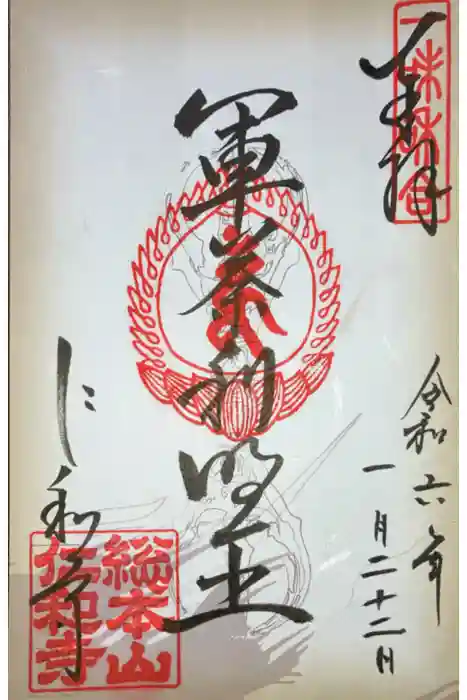 奉拝
令和六年
一月二十二日
軍荼利明王
仁和寺
総本山
仁和寺